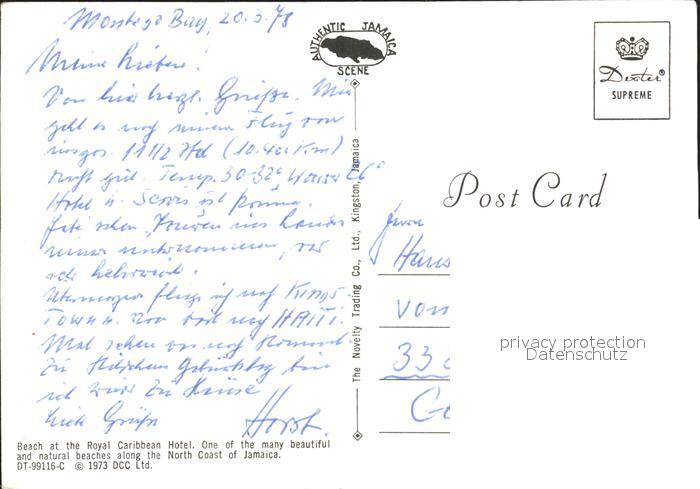 Montego Bay, 20.3.78
Meine Lieben!
Von hier herzl. Grüße. Mir
geht es nach meinem Flug von
insges. 11 1/2 Std (10.400 Km)
recht gut. Temp. 30-32° Wasser 26°
Hotel u. Servis ist prima.
schon Touren ins Landes
unternommen, war
sehr lehrreich.
Übermorgen fliege ich nach Kings-
Town u. von dort nach HAITI.
Mal sehen was noch kommt.
Zu Geburtstag bin
ich wieder zu Hause
Liebe Grüße Horst.
Beach at the Royal Caribbean Hotel. One of the many beautiful
and natural beaches along the North Coast of Jamaica.
DT-99116-C © 1973 DCC Ltd.
AUTHENTIC JAMAICA
SCENE
The Novelty Trading Co., Ltd., Kingston, Jamaica
Dexter®
SUPREME
Post Card
Herrn
Hans
von
33
privacy protection
Datenschutz